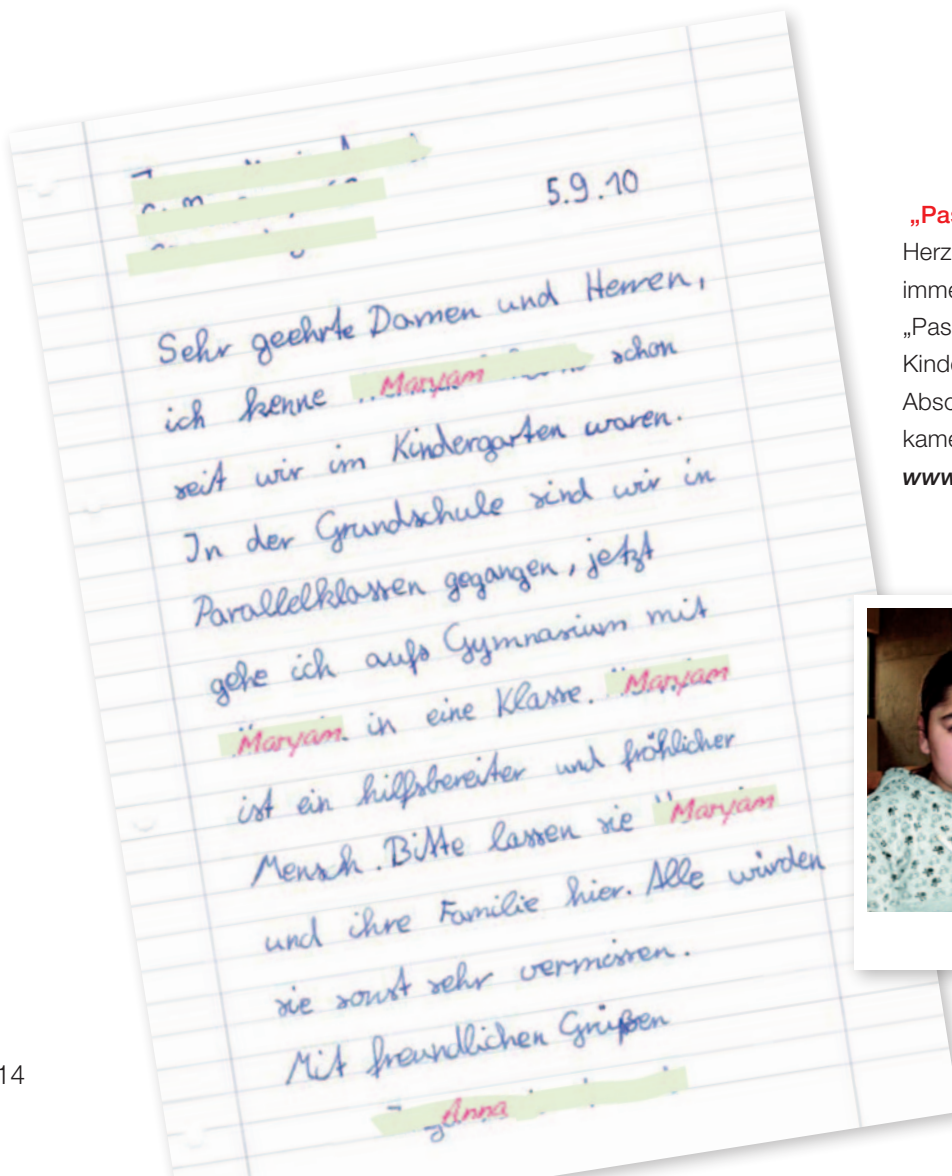 5.9.10
Sehr geehrte Damen und Herren,
ich kenne Maryam schon
seit wir im Kindergarten waren.
In der Grundschule sind wir in
Parallelklassen gegangen, jetzt
gehe ich aufs Gymnasium mit
Maryam in eine Klasse. Maryam
ist ein hilfsbereiter und fröhlicher
Mensch. Bitte lassen sie Maryam
und ihre Familie hier. Alle würden
sie sonst sehr vermissen.
Mit freundlichen Grüßen
Anna
„Pas
Herz
imme
„Pas
Kinde
Absc
kame
www
14